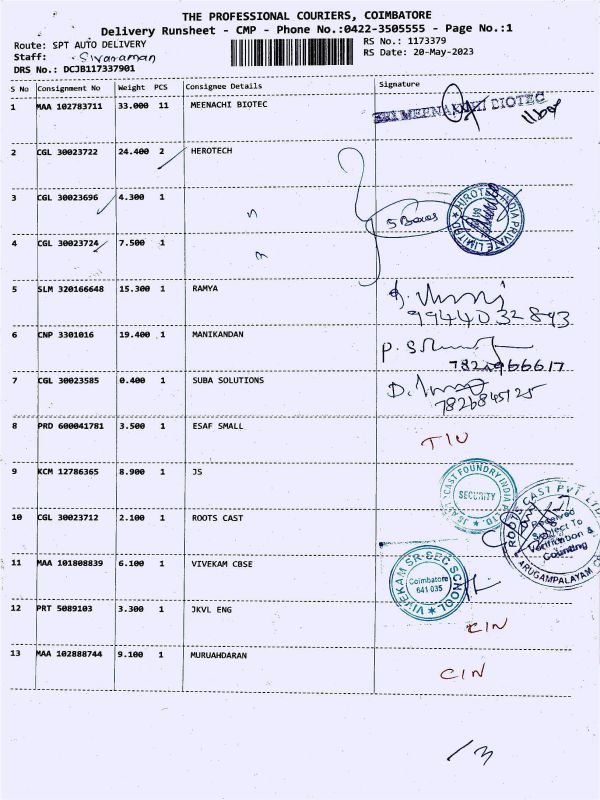 THE PROFESSIONAL COURIERS, COIMBATORE
Delivery Runsheet - CMP - Phone No.:0422-3505555 - Page No.:1
Route: SPT AUTO DELIVERY
RS No.: 1173379
Staff: Sivaraman
RS Date: 20-May-2023
DRS No.: DCJB117337901
S No Consignment No Weight PCS Consignee Details Signature
1 MAA 102783711 33.000 11 MEENACHI BIOTEC
SRI MEENAKSHI BIOTEC
11box
2 CGL 30023722 24.400 2 HEROTECH
3 CGL 30023696 4.300 1 "
5 Boxes
HIROTEC INDIA PRIVATE LIMITED
4 CGL 30023724 7.500 1 "
5 SLM 320166648 15.300 1 RAMYA
9944032893
6 CNP 3301016 19.400 1 MANIKANDAN
7 CGL 30023585 0.400 1 SUBA SOLUTIONS
8 PRD 600041781 3.500 1 ESAF SMALL
9 KCM 12786365 8.900 1 JS
CAST FOUNDRY INDIA P. LTD.
SECURITY
10 CGL 30023712 2.100 1 ROOTS CAST
ROOTS CAST PVT LTD
Received
Subject To
Verification &
Counting
ARUGAMPALAYAM
11 MAA 101808839 6.100 1 VIVEKAM CBSE
VIVEKAM SR. SEC SCHOOL
Coimbatore
641 035
12 PRT 5089103 3.300 1 JKVL ENG CIN
13 MAA 102888744 9.100 1 MURUAHDARAN CIN
13